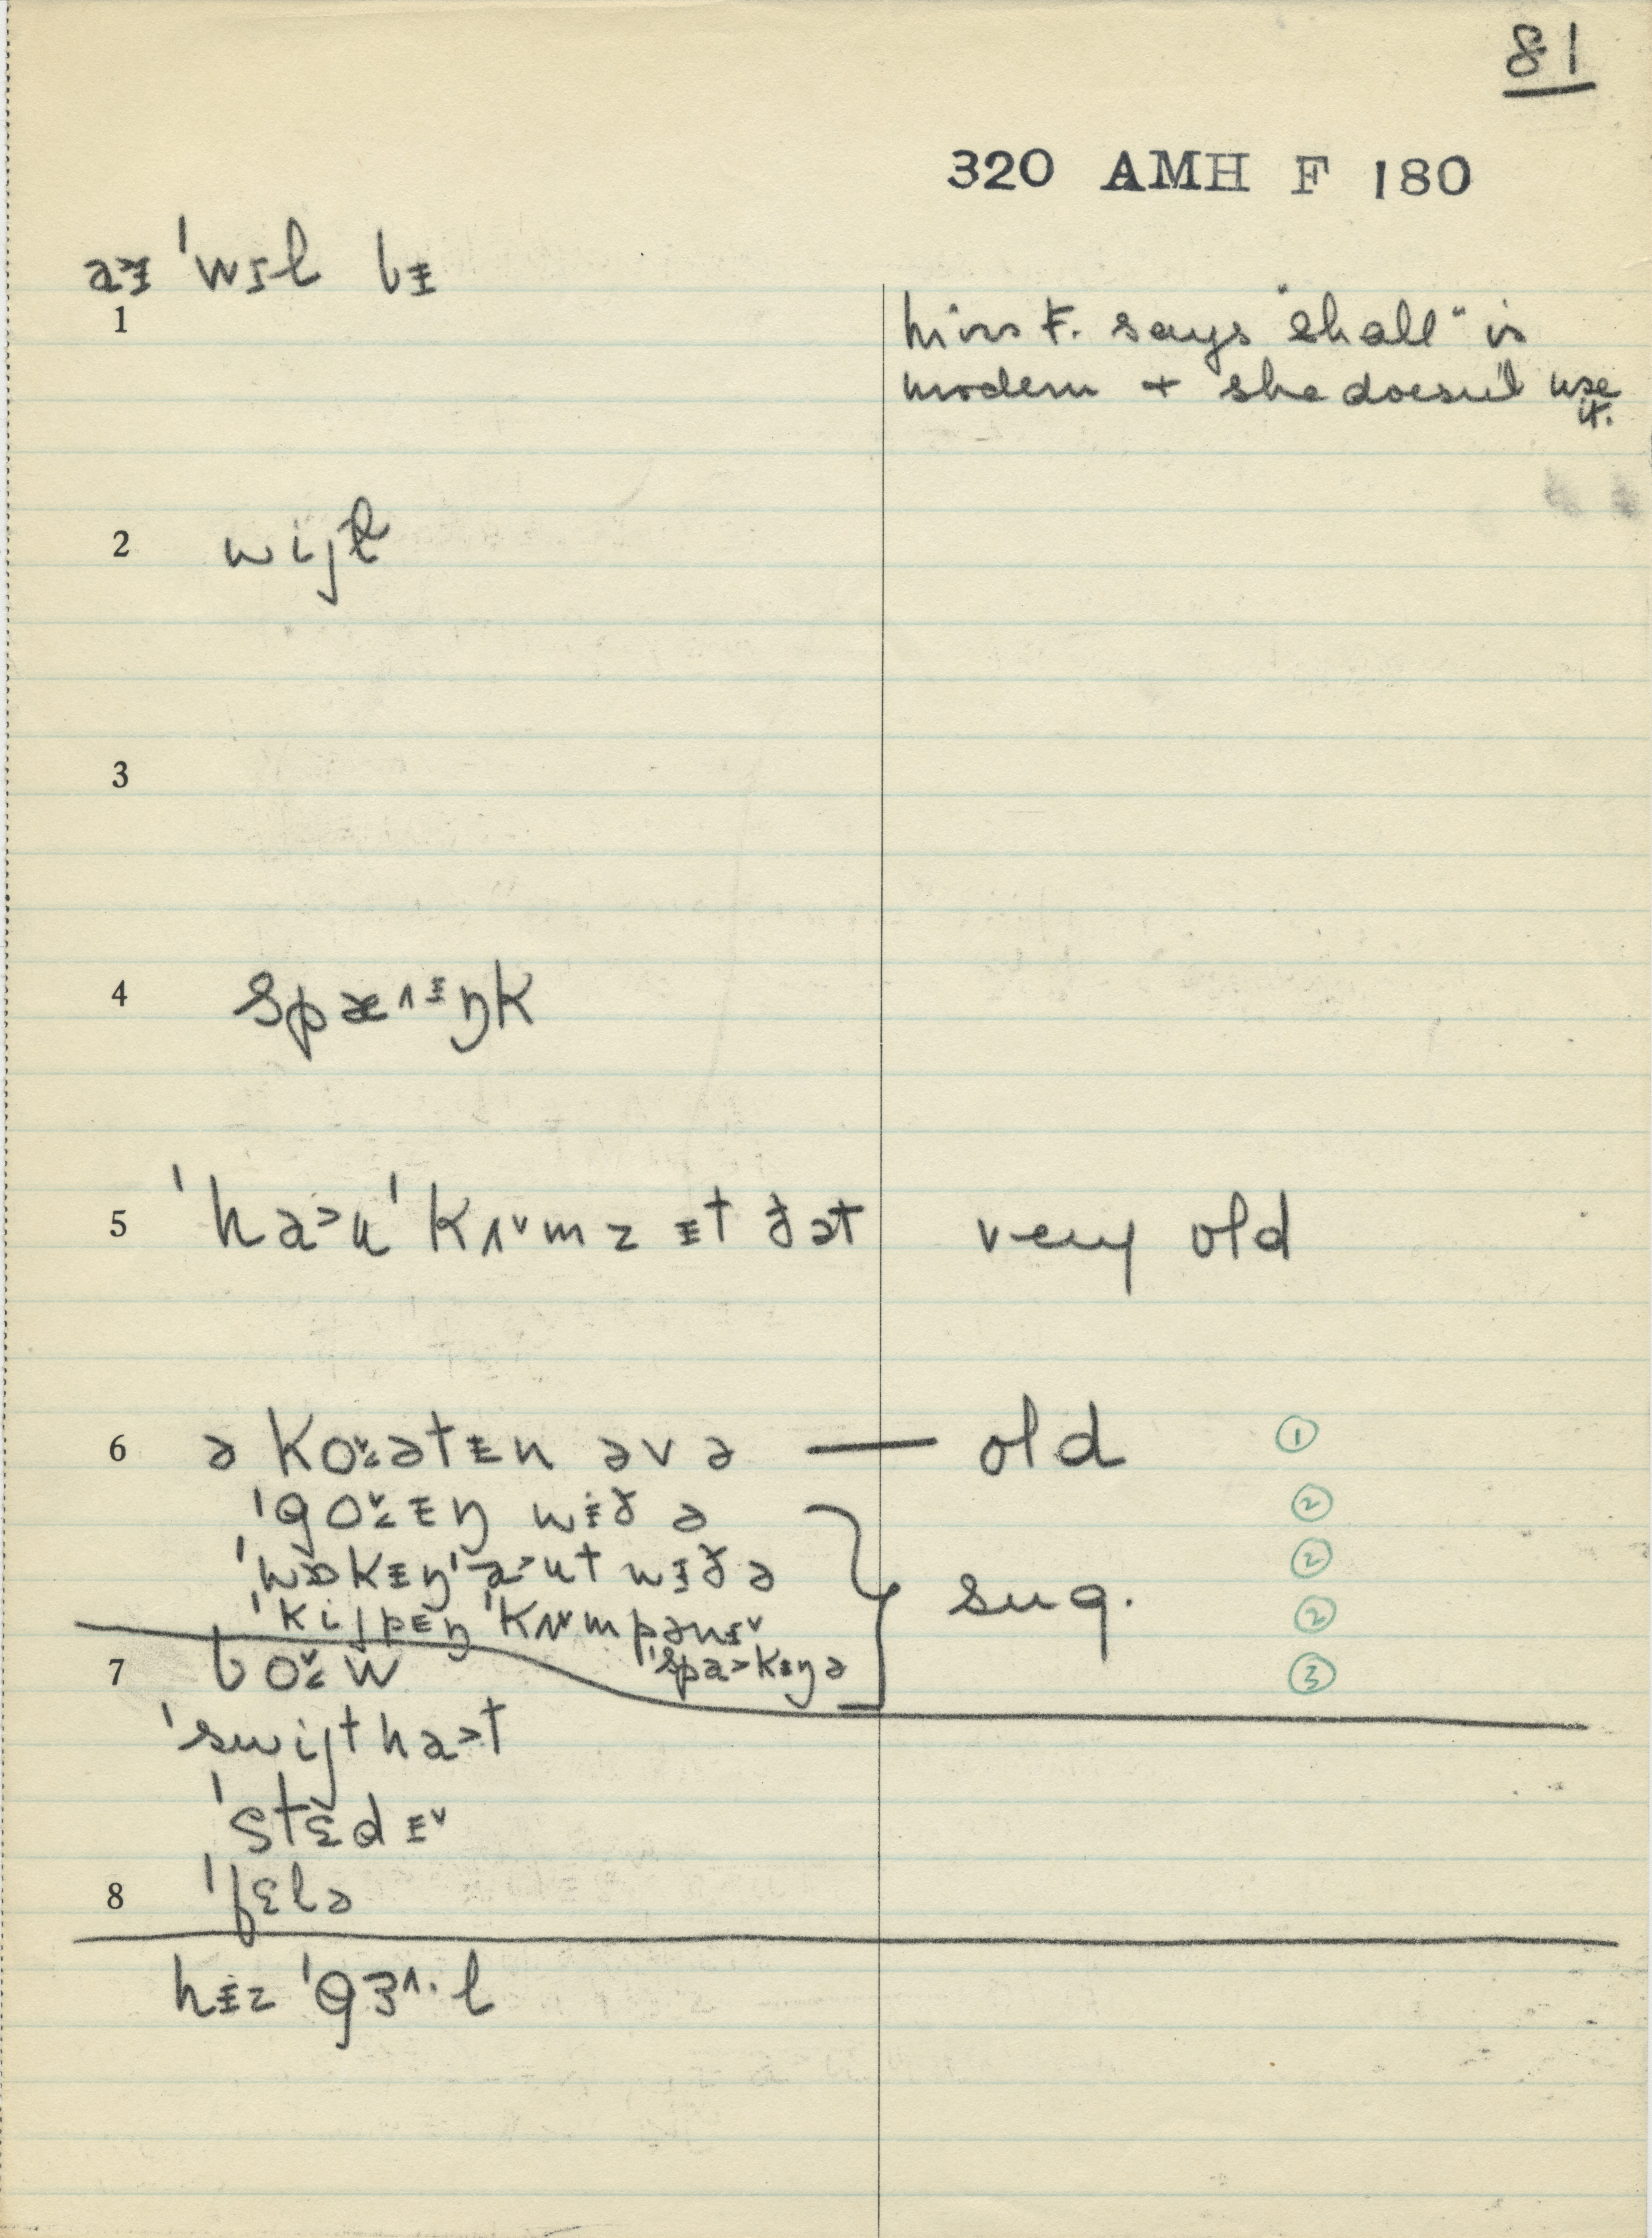 81
320 AMH F 180
aɜᵻ ˈwɪl bᵻ
1 Miss F. says "shall" is
modern + she doesn't use
it.
2 wijl
3
4 spæ˄ᵻŋk
5 ˈha˃uˈkʌ˅mz ᵻt ðət very old
6 ə koətᵻn əv ə — old ①
ˈgoᵻŋ wᵻð ə ②
ˈwɒkᵻŋˈa˃ut wᵻð ə sug. ②
ˈkijpᵻŋˈkʌ˅mpənᵻ˅ ②
ˈspa˃kᵻŋə ③
7 bow
ˈswijtha˃t
ˈstɛdᵻ˅
8 ˈfɛlə
hᵻz ˈgɜ˄·l